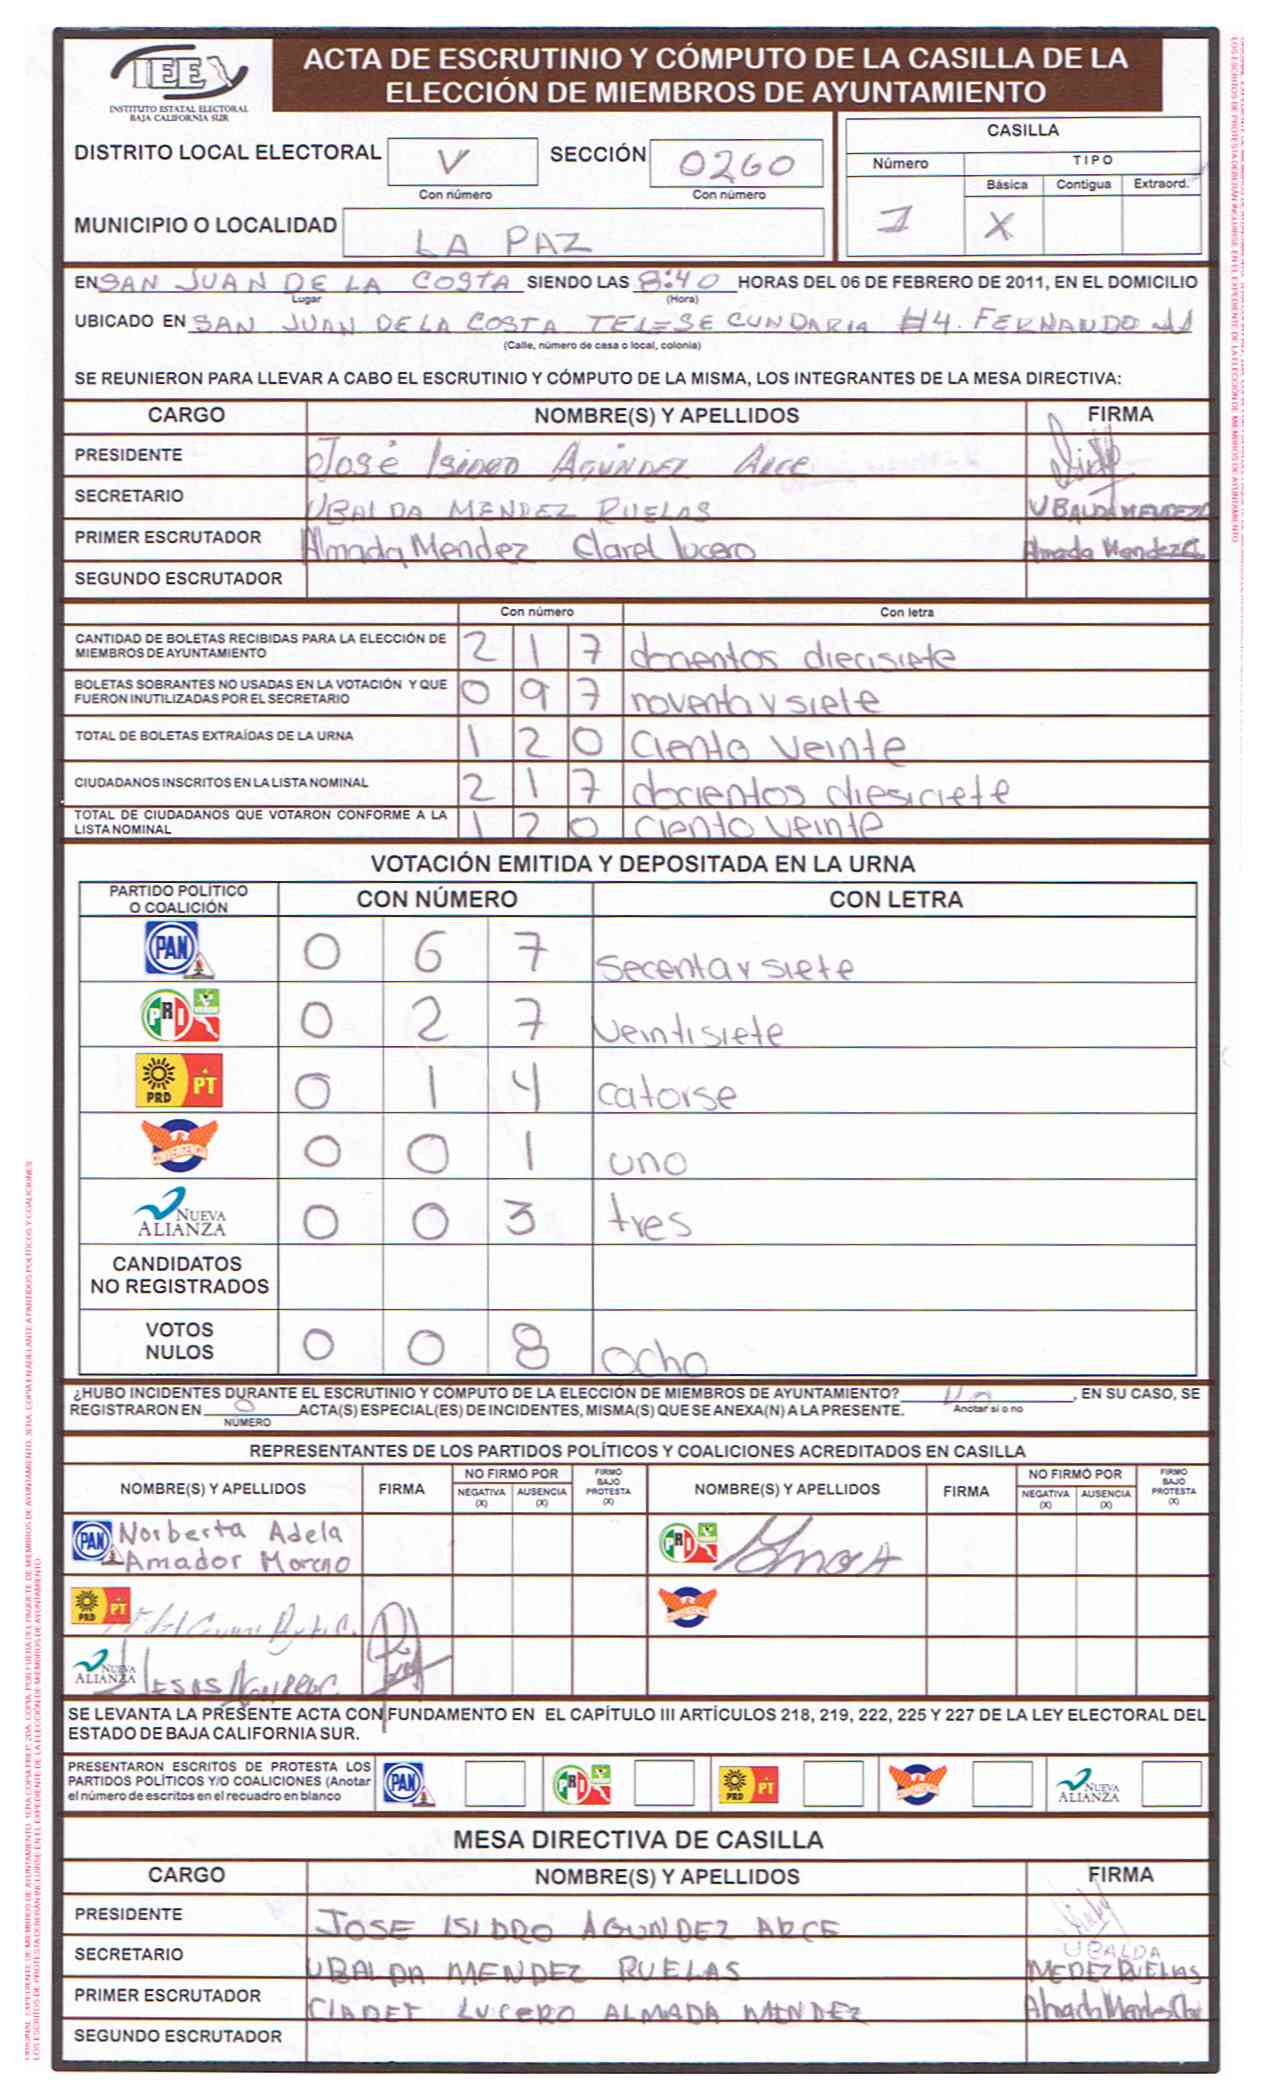 IEE
INSTITUTO ESTATAL ELECTORAL
BAJA CALIFORNIA SUR
ACTA DE ESCRUTINIO Y CÓMPUTO DE LA CASILLA DE LA
ELECCIÓN DE MIEMBROS DE AYUNTAMIENTO
DISTRITO LOCAL ELECTORAL V SECCIÓN 0260
Con número Con número
MUNICIPIO O LOCALIDAD LA PAZ
CASILLA
Número TIPO
Básica Contigua Extraord.
1 X
EN SAN JUAN DE LA COSTA SIENDO LAS 8:40 HORAS DEL 06 DE FEBRERO DE 2011, EN EL DOMICILIO
Lugar (Hora)
UBICADO EN SAN JUAN DE LA COSTA TELESECUNDARIA #4. FERNANDO
(Calle, número de casa o local, colonia)
SE REUNIERON PARA LLEVAR A CABO EL ESCRUTINIO Y CÓMPUTO DE LA MISMA, LOS INTEGRANTES DE LA MESA DIRECTIVA:
CARGO NOMBRE(S) Y APELLIDOS FIRMA
PRESIDENTE José Isidro Agúndez Arce
SECRETARIO UBALDA MENDEZ RUELAS UBALDA MENDEZ
PRIMER ESCRUTADOR Almada Mendez Claret Lucero Almada Mendez C
SEGUNDO ESCRUTADOR
Con número Con letra
CANTIDAD DE BOLETAS RECIBIDAS PARA LA ELECCIÓN DE
MIEMBROS DE AYUNTAMIENTO 2 1 7 docientos diecisiete
BOLETAS SOBRANTES NO USADAS EN LA VOTACIÓN Y QUE
FUERON INUTILIZADAS POR EL SECRETARIO 0 9 7 noventa y siete
TOTAL DE BOLETAS EXTRAÍDAS DE LA URNA 1 2 0 Ciento veinte
CIUDADANOS INSCRITOS EN LA LISTA NOMINAL 2 1 7 docientos diesiciete
TOTAL DE CIUDADANOS QUE VOTARON CONFORME A LA
LISTA NOMINAL 1 2 0 ciento veinte
VOTACIÓN EMITIDA Y DEPOSITADA EN LA URNA
PARTIDO POLÍTICO
O COALICIÓN CON NÚMERO CON LETRA
PAN 0 6 7 secenta y siete
PRI VERDE 0 2 7 veintisiete
PRD PT 0 1 4 catorse
CONVERGENCIA 0 0 1 uno
NUEVA ALIANZA 0 0 3 tres
CANDIDATOS
NO REGISTRADOS
VOTOS
NULOS 0 0 8 ocho
¿HUBO INCIDENTES DURANTE EL ESCRUTINIO Y CÓMPUTO DE LA ELECCIÓN DE MIEMBROS DE AYUNTAMIENTO? no, EN SU CASO, SE
REGISTRARON EN 0 ACTA(S) ESPECIAL(ES) DE INCIDENTES, MISMA(S) QUE SE ANEXA(N) A LA PRESENTE. Anotar si o no
NÚMERO
REPRESENTANTES DE LOS PARTIDOS POLÍTICOS Y COALICIONES ACREDITADOS EN CASILLA
NOMBRE(S) Y APELLIDOS FIRMA NO FIRMÓ POR NEGATIVA (X) AUSENCIA (X) FIRMÓ BAJO PROTESTA (X) NOMBRE(S) Y APELLIDOS FIRMA NO FIRMÓ POR NEGATIVA (X) AUSENCIA (X) FIRMÓ BAJO PROTESTA (X)
PAN Norberta Adela PRI
Amador Moreno
PRD PT
NUEVA ALIANZA
SE LEVANTA LA PRESENTE ACTA CON FUNDAMENTO EN EL CAPÍTULO III ARTÍCULOS 218, 219, 222, 225 Y 227 DE LA LEY ELECTORAL DEL
ESTADO DE BAJA CALIFORNIA SUR.
PRESENTARON ESCRITOS DE PROTESTA LOS
PARTIDOS POLÍTICOS Y/O COALICIONES (Anotar
el número de escritos en el recuadro en blanco
PAN PRI PRD PT NUEVA ALIANZA
MESA DIRECTIVA DE CASILLA
CARGO NOMBRE(S) Y APELLIDOS FIRMA
PRESIDENTE JOSE ISIDRO AGUNDEZ ARCE
SECRETARIO UBALDA MENDEZ RUELAS UBALDA MEDEZ RUELAS
PRIMER ESCRUTADOR CLARET LUCERO ALMADA MENDEZ
SEGUNDO ESCRUTADOR